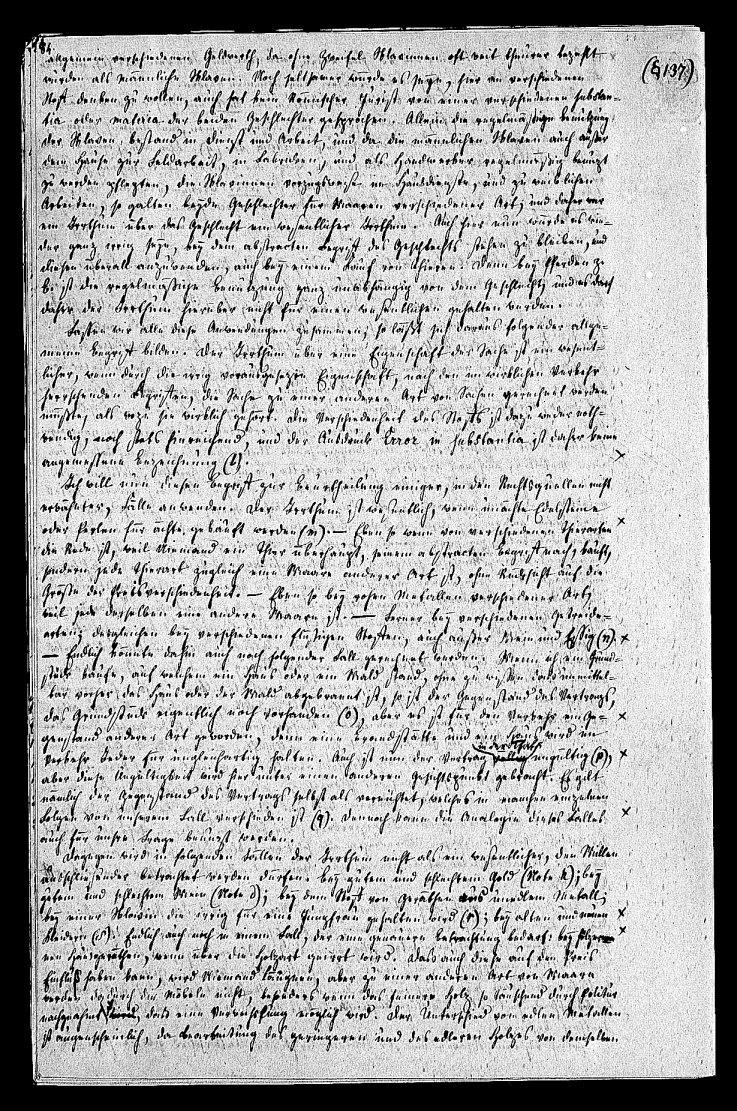 84.
(§137.)
allgemein verschiedenen Geldwerth, da ohne Zweifel Sklavinnen oft weit theurer bezahlt
wurden als männliche Sklaven. Noch seltsamer würde es seyn, hier an verschiedenen
Stoff denken zu wollen, auch hat kein Römischer Jurist von einer verschiedenen substan-
tia oder materia der beiden Geschlechter gesprochen. Allein die regelmäßige Benutzung
der Sklaven bestand in Dienst und Arbeit, und da die männlichen Sklaven auch außer
dem Hause zur Feldarbeit, in Fabriken, und als Handwerker regelmäßig benutzt
zu werden pflegten, die Sklavinnen vorzugsweise im Hausdienste, und zu weiblichen
Arbeiten, so galten beyde Geschlechter für Waaren verschiedener Art, und daher war
ein Irrthum über das Geschlecht ein wesentlicher Irrthum. Auch hier nun würde es wie-
der ganz irrig seyn, bey dem abstracten Begriff des Geschlechts stehen zu bleiben, und
diesen überall anzuwenden, auch bey einem Kauf von Thieren. Denn bey Pferden z.
B. ist die regelmäßige Benutzung ganz unabhängig von dem Geschlecht, und es darf
daher der Irrthum hierüber nicht für einen wesentlichen gehalten werden.
Fassen wir alle diese Anwendungen zusammen, so läßt sich daraus folgender allge-
meine Begriff bilden. Der Irrthum über eine Eigenschaft der Sache ist ein wesent-
licher, wenn durch die irrig vorausgesetzte Eigenschaft, nach den im wirklichen Verkehr
herrschenden Begriffen, die Sache zu einer anderen Art von Sachen gerechnet werden
müßte, als wozu sie wirklich gehört. Die Verschiedenheit des Stoffs ist dazu weder noth-
wendig, noch stets hinreichend, und der Ausdruck Error in substantia ist daher keine
angemessene Bezeichnung (l).
Ich will nun diesen Begriff zur Beurtheilung einiger, in den Rechtsquellen nicht
erwähnter, Fälle anwenden. Der Irrthum ist wesentlich, wenn unächte Edelsteine
oder Perlen für ächte gekauft werden (m). — Eben so wenn von verschiedenen Thierarten
die Rede ist, weil Niemand ein Thier überhaupt, seinem abstracten Begriff nach, kauft,
sondern jede Thierart zugleich eine Waare anderer Art ist, ohne Rücksicht auf die
Größe der Preisverschiedenheit. — Eben so bey rohen Metallen verschiedener Art,
weil jede derselben eine andere Waare ist. — Ferner bey verschiedenen Getreide-
arten; desgleichen bey verschiedenen flüssigen Stoffen, auch außer Wein und Essig (n).
— Endlich könnte dahin auch noch folgender Fall gerechnet werden. Wenn ich ein Grund-
stück kaufe, auf welchem ein Haus oder ein Wald stand, ohne zu wissen, daß unmittel-
bar vorher das Haus oder der Wald abgebrannt ist, so ist der Gegenstand des Vertrags,
das Grundstück eigentlich noch vorhanden (o), aber es ist für den Verkehr ein Ge-
genstand anderer Art geworden, denn eine Brandstätte und ein Haus wird im
Verkehr Jeder für ungleichartig halten. Auch ist nun der Vertrag in der That ungültig (p),
aber diese Ungültigkeit wird hier unter einen anderen Gesichtspunkt gebracht. Es gilt
nämlich der Gegenstand des Vertrags selbst als vernichtet, welches in manchen einzelnen
Folgen von unserem Fall verschieden ist (q). Dennoch kann die Analogie dieses Falles
auch für unsre Frage benutzt werden.
Dagegen wird in folgenden Fällen der Irrthum nicht als ein wesentlicher, den Willen
ausschließender betrachtet werden dürfen: bey gutem und schlechtem Gold (Note k); bey
gutem und schlechtem Wein (Note d); bey dem Stoff von Geräthen aus unedlem Metall;
bey einer Sklavin die irrig für eine Jungfrau gehalten wird (r); bey alten und neuen
Kleidern (s). Endlich auch noch in einem Fall, der eine genauere Betrachtung bedarf: bey hölzer-
nen Hausgeräthen, wenn über die Holzart geirrt wird. Daß auch diese auf den Preis
Einfluß haben kann, wird Niemand läugnen, aber zu einer anderen Art von Waare
werden dadurch die Möbeln nicht, besonders wenn das feinere Holz so täuschend durch Politur
nachgeahmt wird, daß eine Verwechslung möglich wird. Der Unterschied von edlen Metallen
ist augenscheinlich, da Bearbeitung des geringeren und des edleren Holzes von demselben